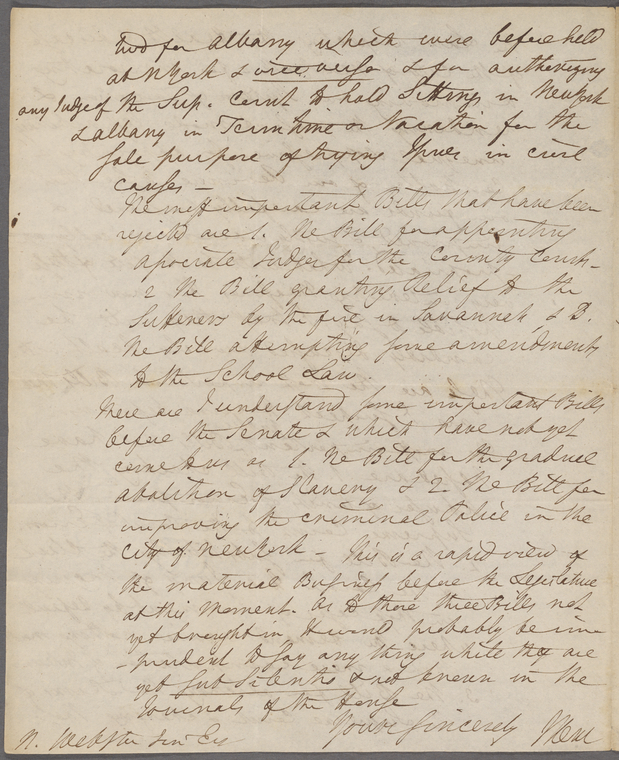 two for Albany which were before held
at NYork & vice versa & for authorizing
any Judge of the Sup. Court to hold Sittings in NewYork
& Albany in Term time or Vacation for the
sole purpose of trying Issues in civil
causes —
The most important Bills that have been
rejected are 1. The Bill for appointing
associate Judges for the County Courts —
2 The Bill granting Relief to the
Sufferers by the fire in Savannah, & 3.
The Bill attempting some amendments
to the School Law
There are I understand some important Bills
before the Senate & which have not yet
come to us as 1. The Bill for the gradual
abolition of Slavery & 2. The Bill for
improving the criminal Police in the
City of NewYork — This is a rapid view of
the material Business before the Legislature
at this Moment. As to those three Bills not
yet brought in it would probably be im-
-prudent to say any thing while they are
yet sub Silentio & not known in the
Journals of the House
Yours Sincerely
N. Webster Jun Esq